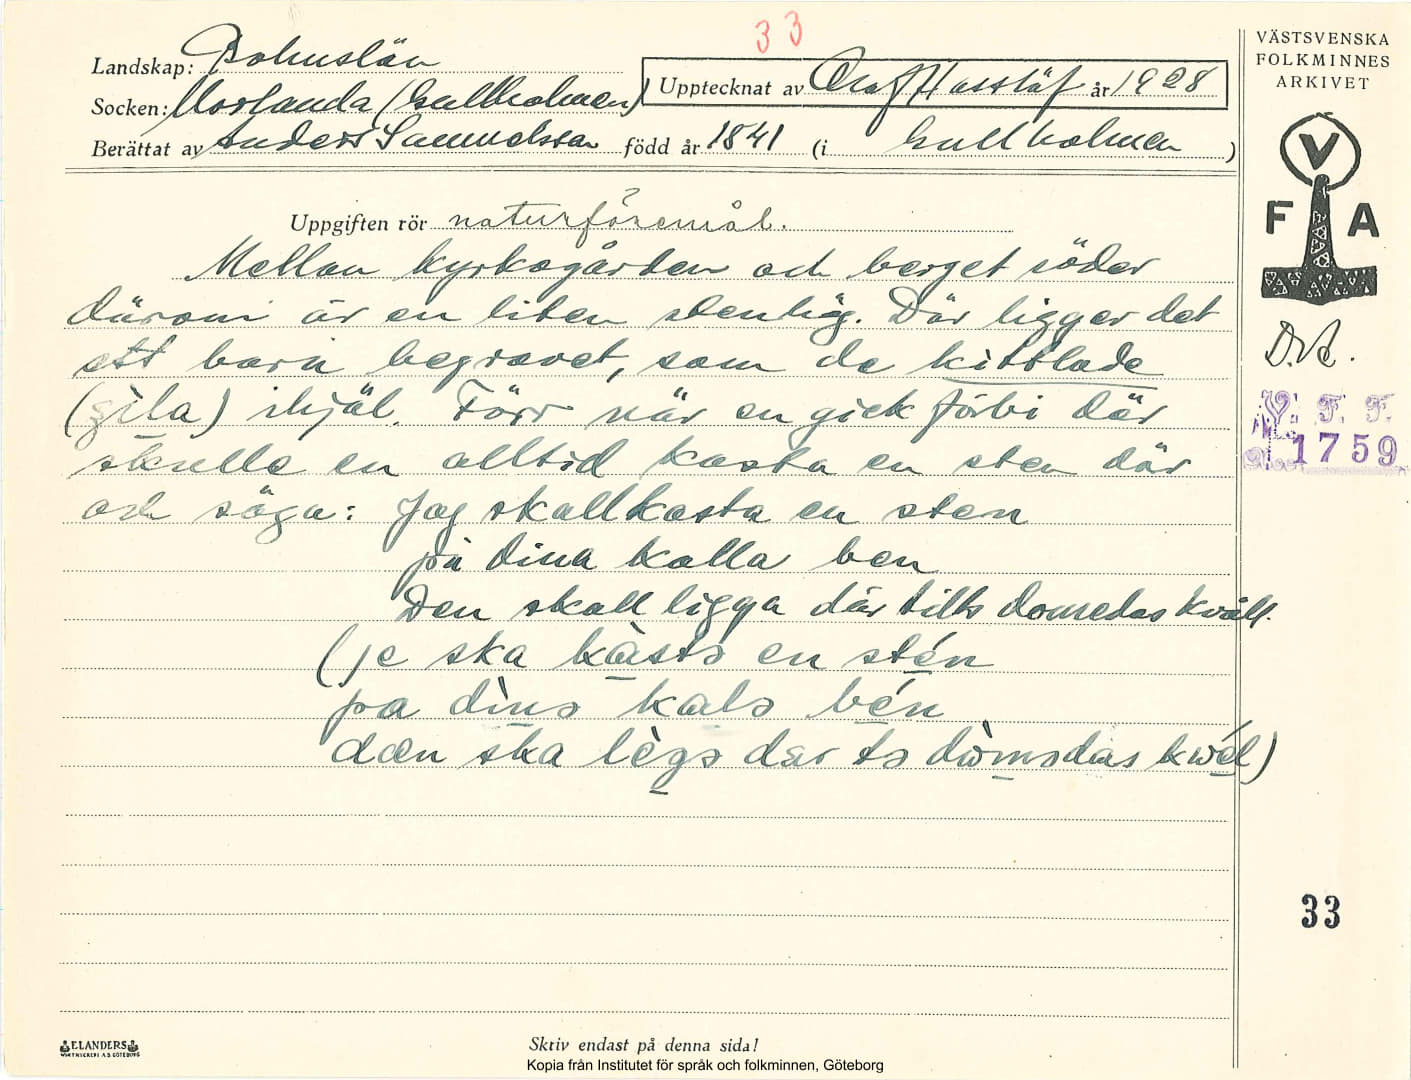 33
Landskap: Bohuslän
Socken: Morlanda (Gullholmen)
Upptecknat av Olof Hasslöf år 1928
Berättat av Anders Samuelsson född år 1841 (i Gullholmen)
Uppgiften rör naturföremål.
Mellan kyrkogården och berget söder
därom är en liten stenhög. Där ligger det
ett barn begravet, som de kittlade
(gila) ihjäl. Förr när en gick förbi där
skulle en alltid kasta en sten där
och säga: Jag skall kasta en sten
på dina kalla ben
Den skall ligga där tills domedas kväll.
(je ska kàsta en stén
pa dìna kala bén
dæn ska lègə dar tə dòmsdas kwél)
VÄSTSVENSKA
FOLKMINNES
ARKIVET
V
F A
D.A.
V. F. F.
1759
33
ELANDERS
Skriv endast på denna sida!
Kopia från Institutet för språk och folkminnen, Göteborg